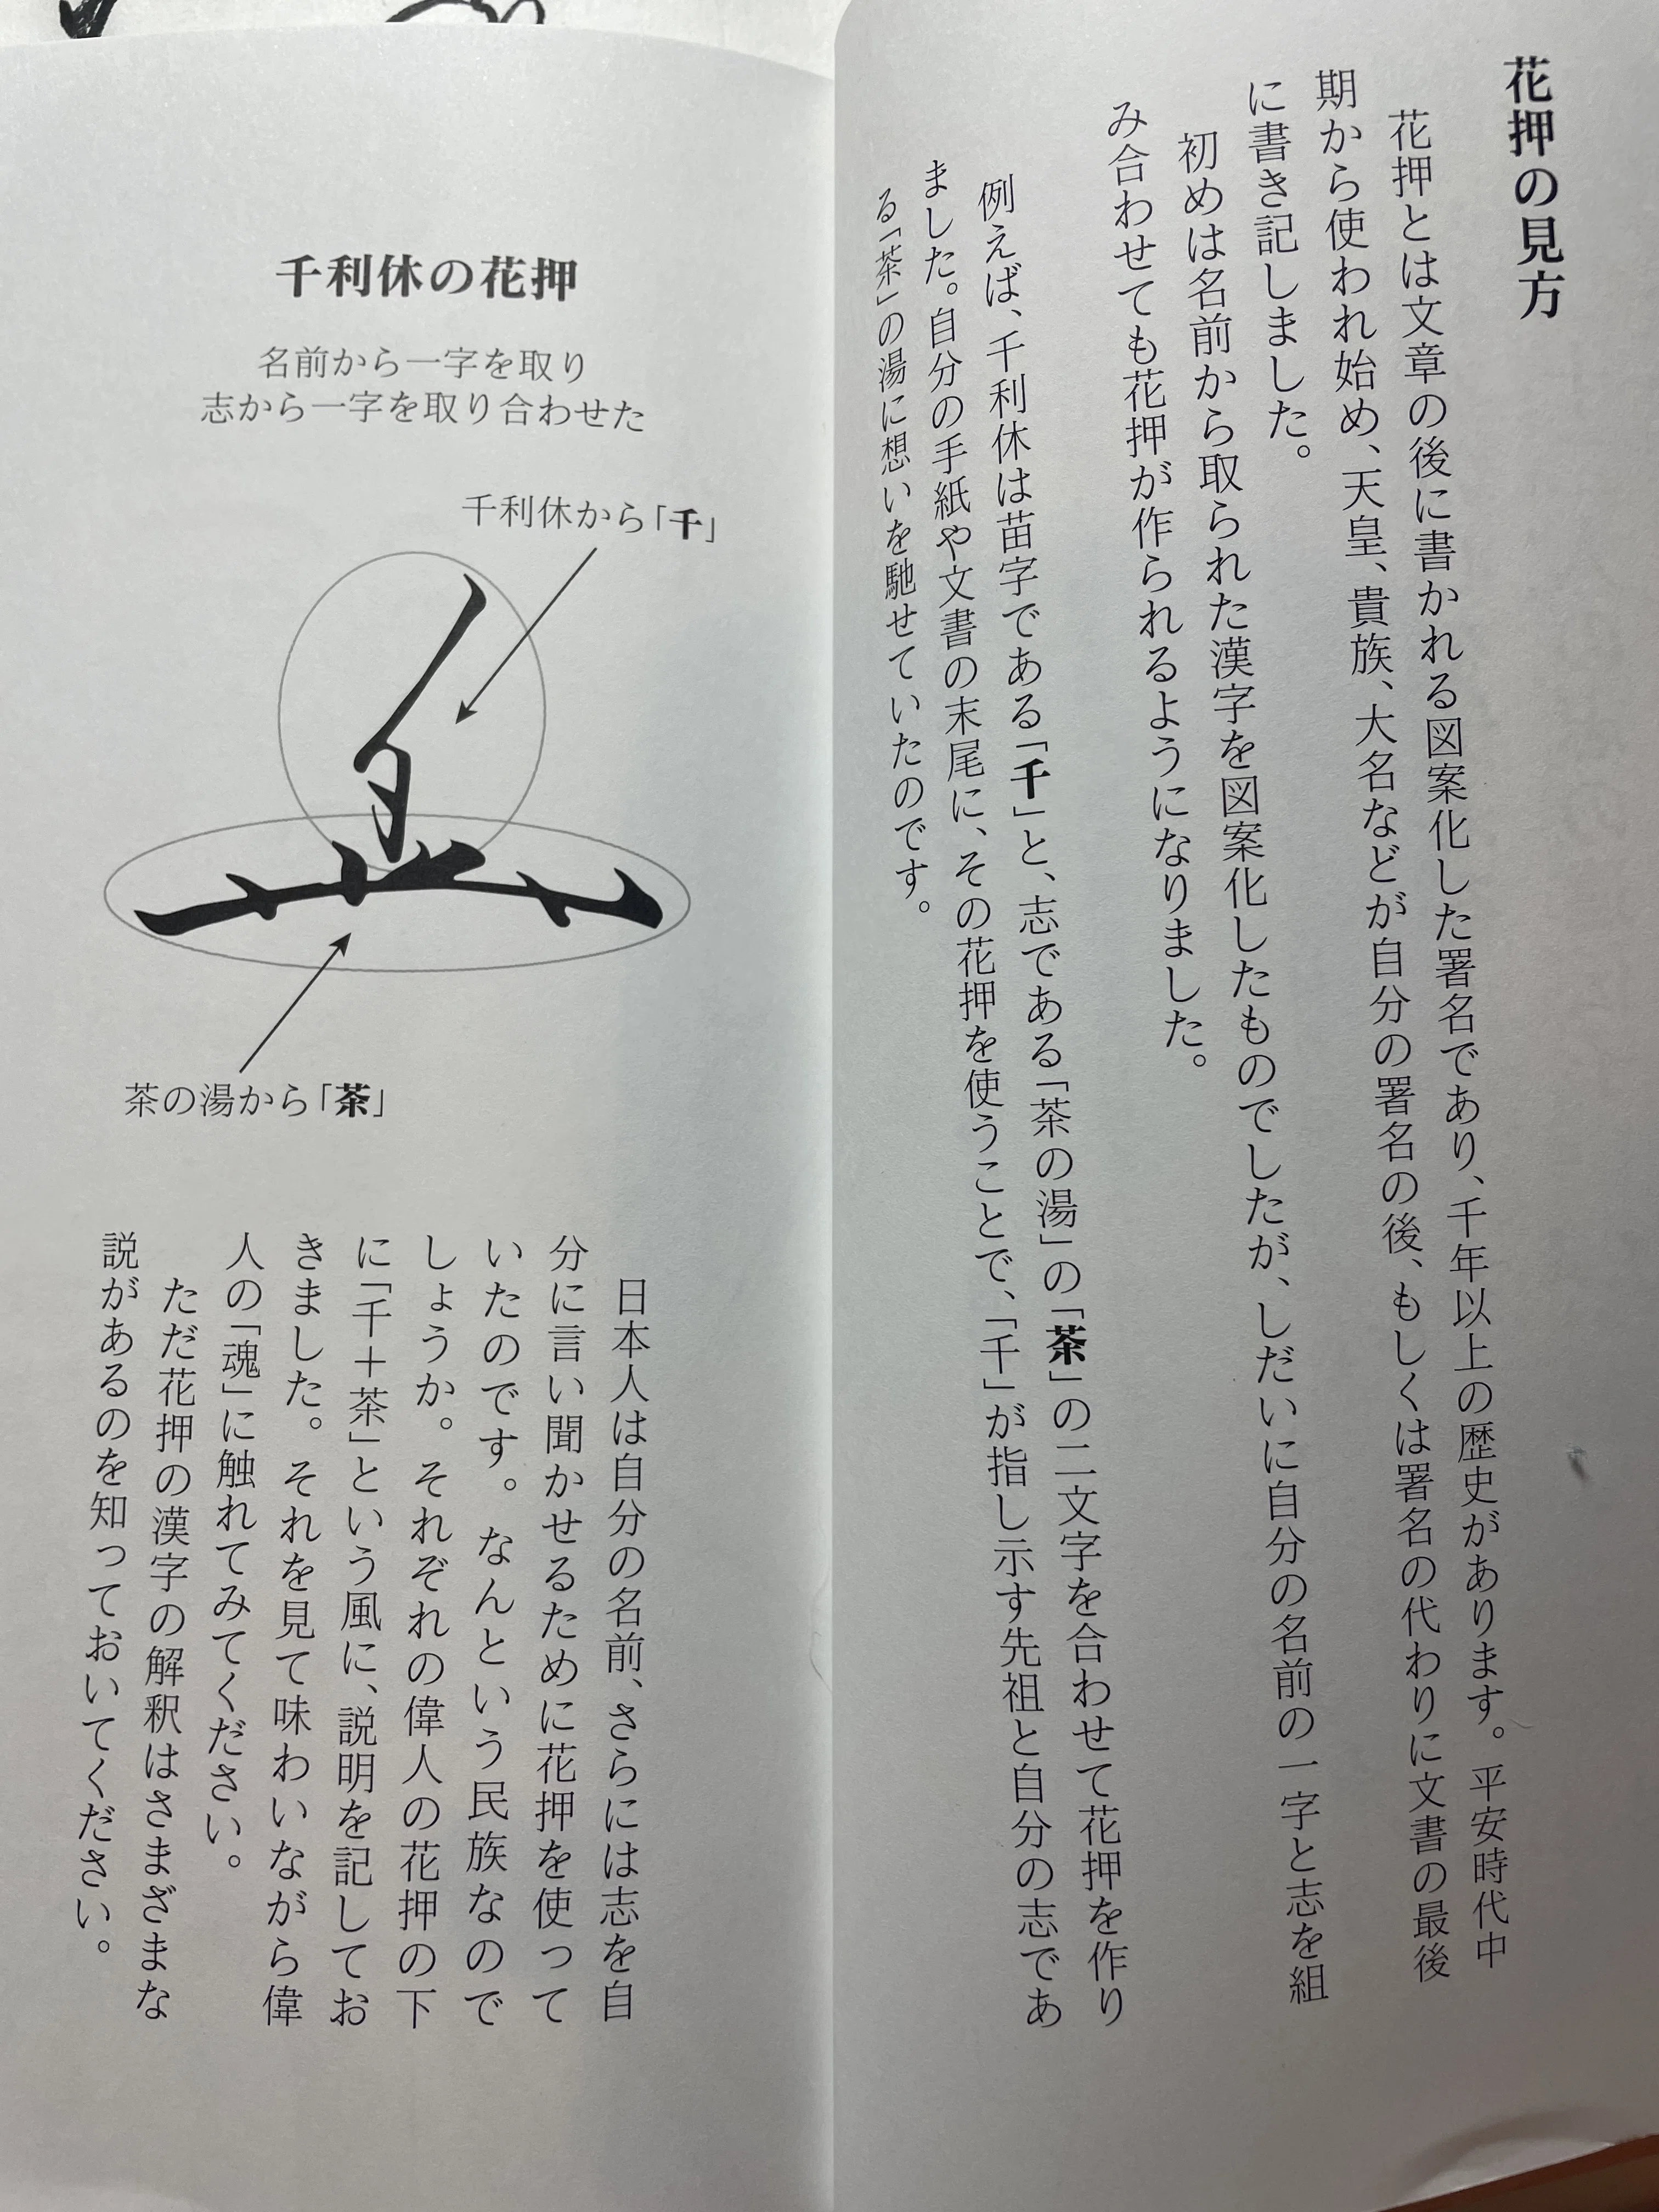 花押の見方
花押とは文章の後に書かれる図案化した署名であり、千年以上の歴史があります。平安時代中
期から使われ始め、天皇、貴族、大名などが自分の署名の後、もしくは署名の代わりに文書の最後
に書き記しました。
初めは名前から取られた漢字を図案化したものでしたが、しだいに自分の名前の一字と志を組
み合わせても花押が作られるようになりました。
例えば、千利休は苗字である「千」と、志である「茶の湯」の「茶」の二文字を合わせて花押を作り
ました。自分の手紙や文書の末尾に、その花押を使うことで、「千」が指し示す先祖と自分の志であ
る「茶」の湯に想いを馳せていたのです。
千利休の花押
名前から一字を取り
志から一字を取り合わせた
千利休から「千」
茶の湯から「茶」
日本人は自分の名前、さらには志を自
分に言い聞かせるために花押を使って
いたのです。なんという民族なので
しょうか。それぞれの偉人の花押の下
に「千＋茶」という風に、説明を記してお
きました。それを見て味わいながら偉
人の「魂」に触れてみてください。
ただ花押の漢字の解釈はさまざまな
説があるのを知っておいてください。